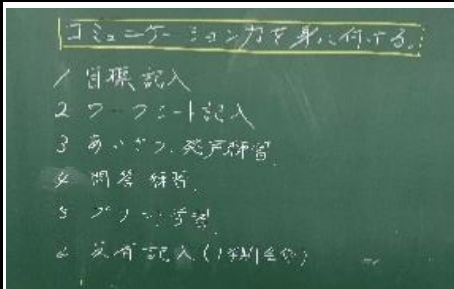 コミュニケーション力を身に付ける。
1 目標記入
2 ワークシート記入
3 あいさつ、発声練習
4 問答練習
5 プリント学習
6 記入(